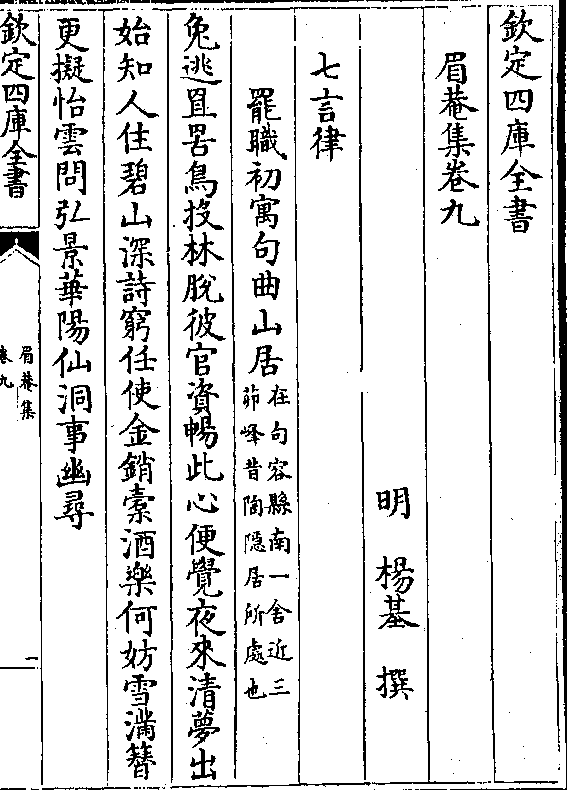 欽定四庫全書
眉菴集卷九
明　楊基　撰
七言律
罷職初寓句曲山居
在句容縣南一舍近三
茆峰昔陶隱居所處也
兔逃罝罟鳥投林脫彼官資暢此心便覺夜來清夢出
始知人住碧山深詩窮任使金銷橐酒樂何妨雪滿簪
更擬怡雲問弘景華陽仙洞事幽尋
欽定四庫全書
眉菴集
卷九
一